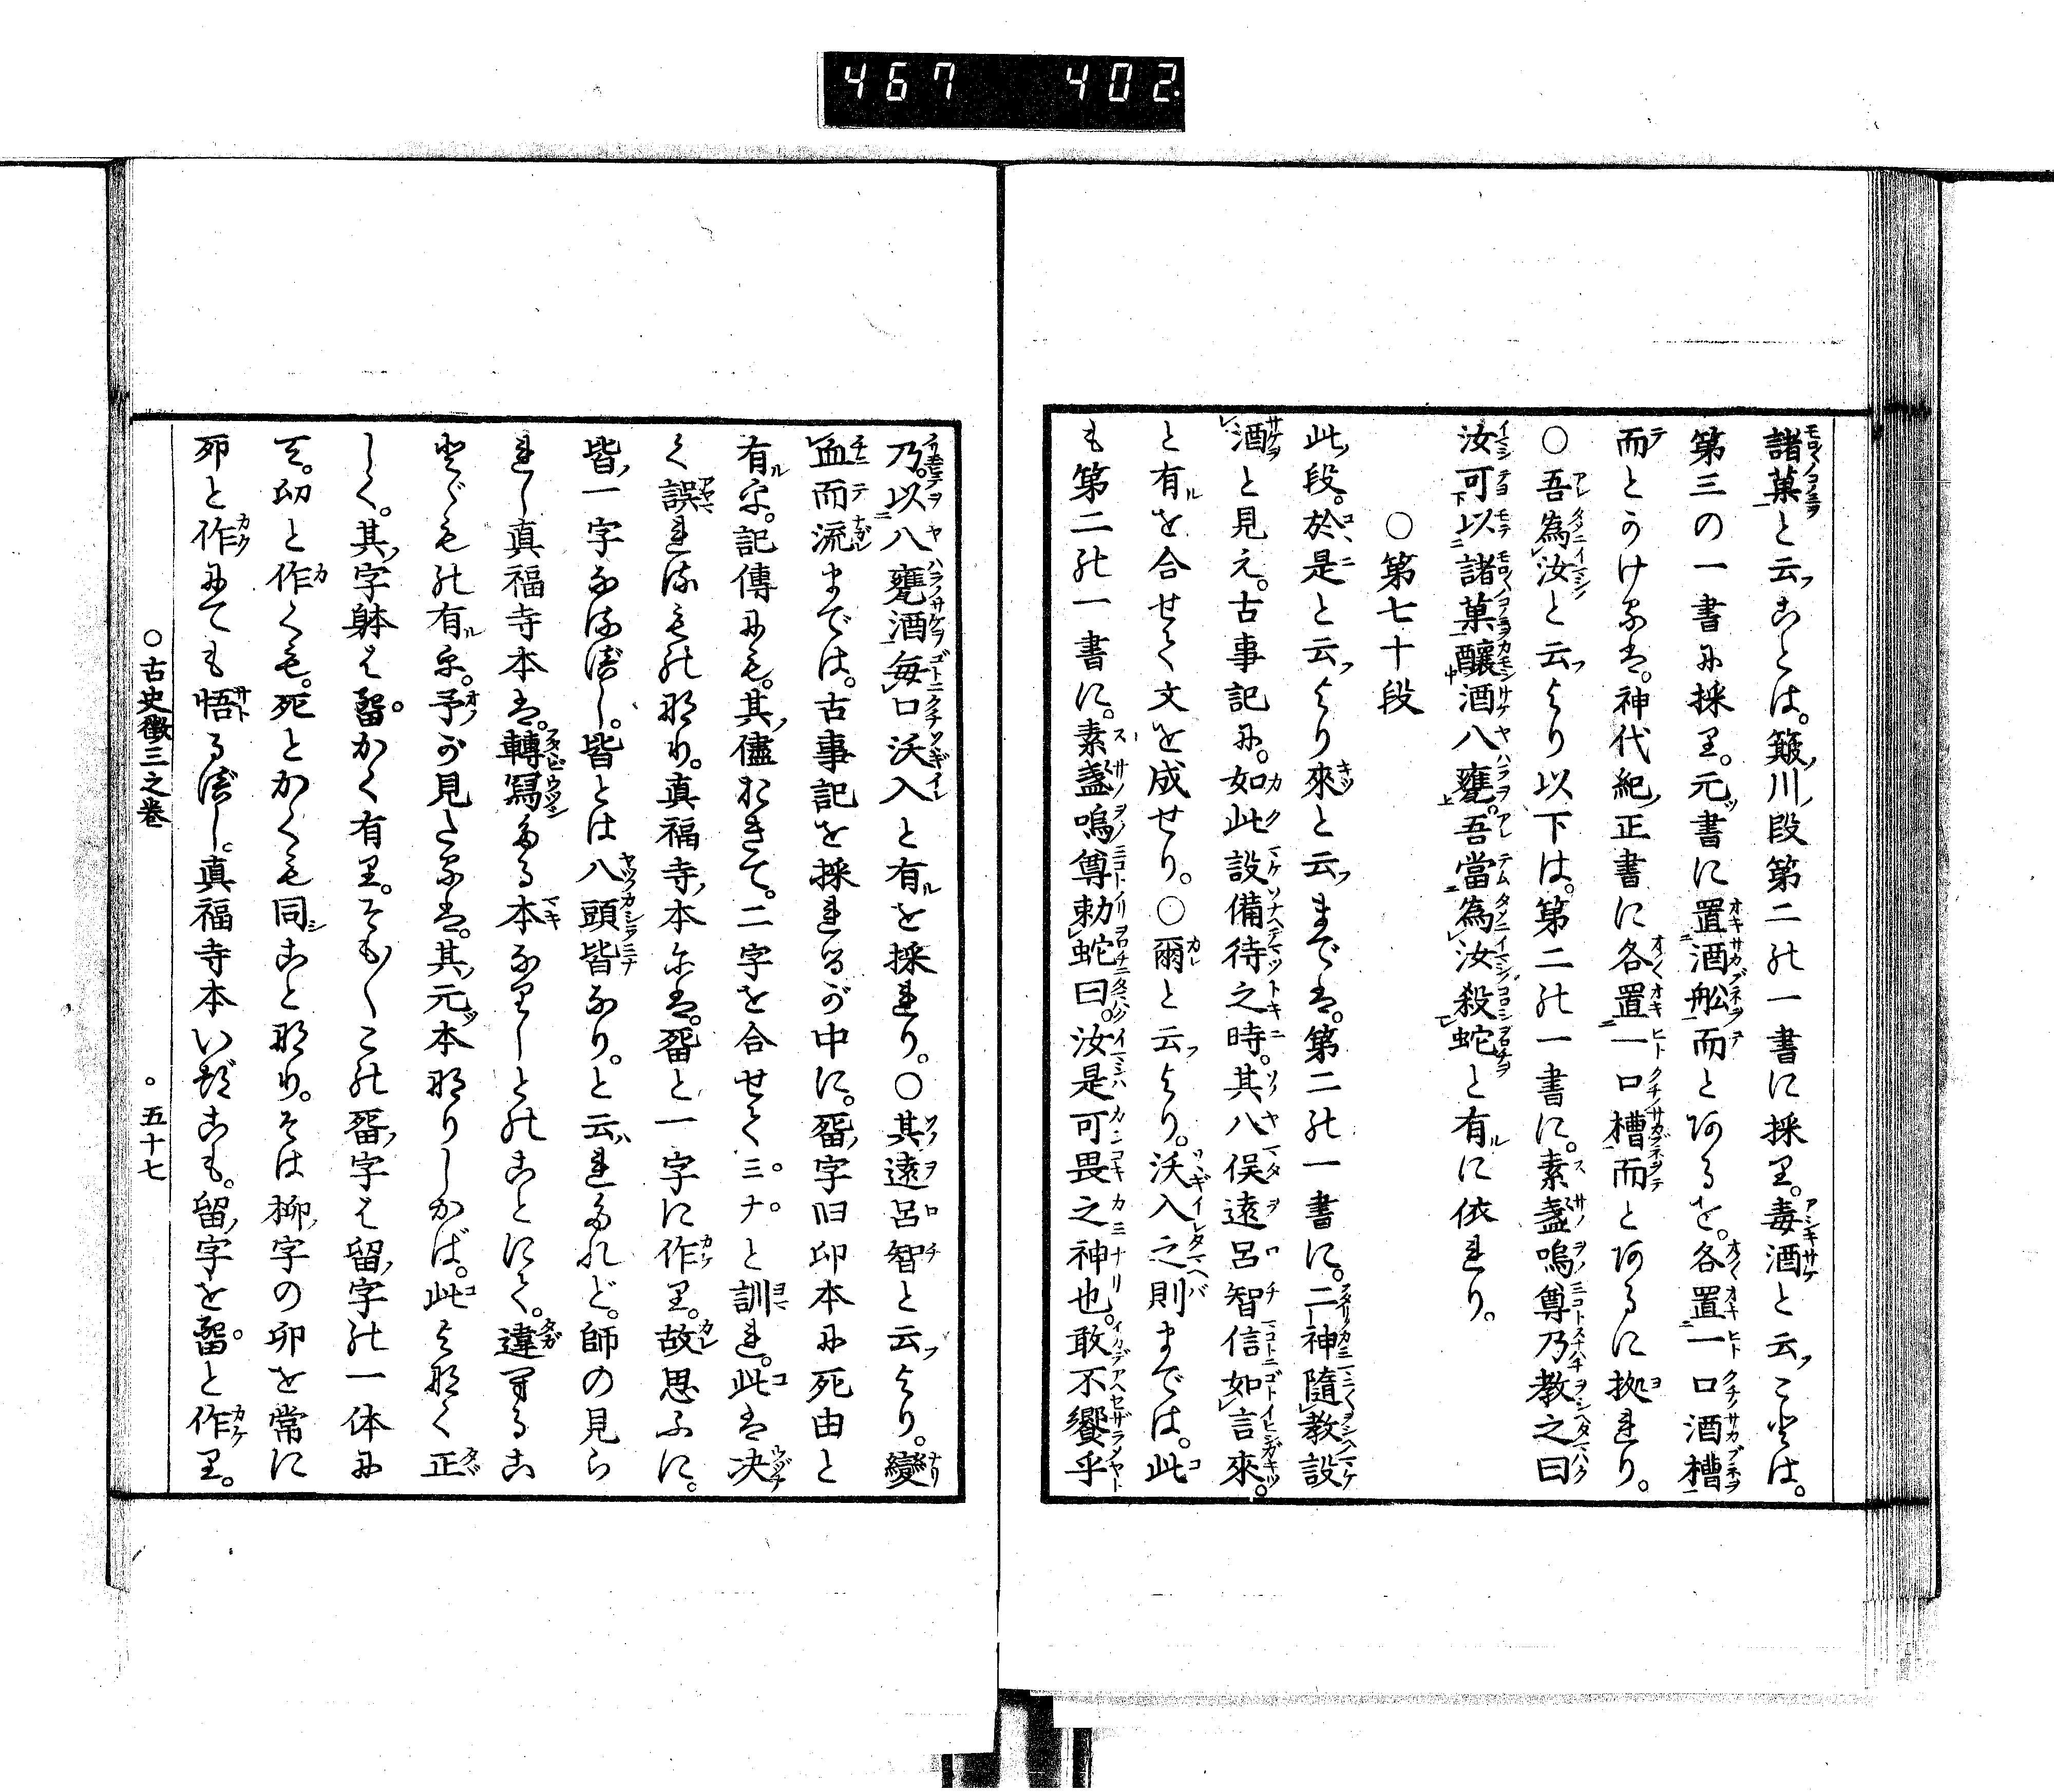 467 402
諸菓と云ことは。簸川段第二の一書に採り。毒酒と云ことは。
第三の一書に採り。元書に置酒舩而とあるを。各置一口酒槽
而とうけるは。神代紀正書に各置一口槽而とあるに拠れり。
○吾為汝と云より以下は。第二の一書に。素盞嗚尊乃教之曰
汝可以諸菓釀酒八甕。吾當為汝殺蛇と有に依れり。
○第七十段
此段。於是と云より來と云までは。第二の一書に。二神隨教設
酒と見え。古事記に。如此設備待之時。其八俣遠呂智信如言來。
と有を合せて文を成せり。○爾と云より。沃入之則までは。此
も第二の一書に。素盞嗚尊勅蛇曰。汝是可畏之神也。敢不饗乎
乃以八甕酒毎口沃入と有を採れり。○其遠呂智と云より。變
血而流までは。古事記を採れるが中に。㽞字旧印本に死由と
有を。記傳にも。其儘おきて。二字を合せてミナと訓れ。此は决
く誤れるもの那り。真福寺本には。㽞と一字に作り。故思ふに。
皆一字なるべし。皆とは八頭皆なり。と云れたれど。師の見ら
れし真福寺本は。轉寫たる本なりしとのことにて。違へるこ
とども の有を。予が見たるは。其元本那りしかば。此を那く正
しく。其字躰は㽞かく有り。そも〳〵この㽞字は留字の一体に
て。と作くも。死とかくも同こと那り。そは柳字の卯を常に
夘と作にても悟るべし。真福寺本いたこも。留字を㽞と作り。
○古史徴三之巻 ○五十七